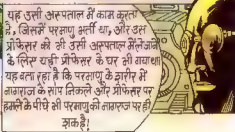 यह उसी अस्पताल में काम करता
है, जिसमें परमाणु भर्ती था, और उस
प्रोफेसर को भी उसी अस्पताल में लेजाने
के लिए यही प्रोफेसर के घर भी गया था!
यह बता रहा है कि परमाणु के शरीर में
नागराज के सांप निकले और प्रोफेसर पर
हमले के पीछे भी परमाणु को नागराज पर ही
शक है!